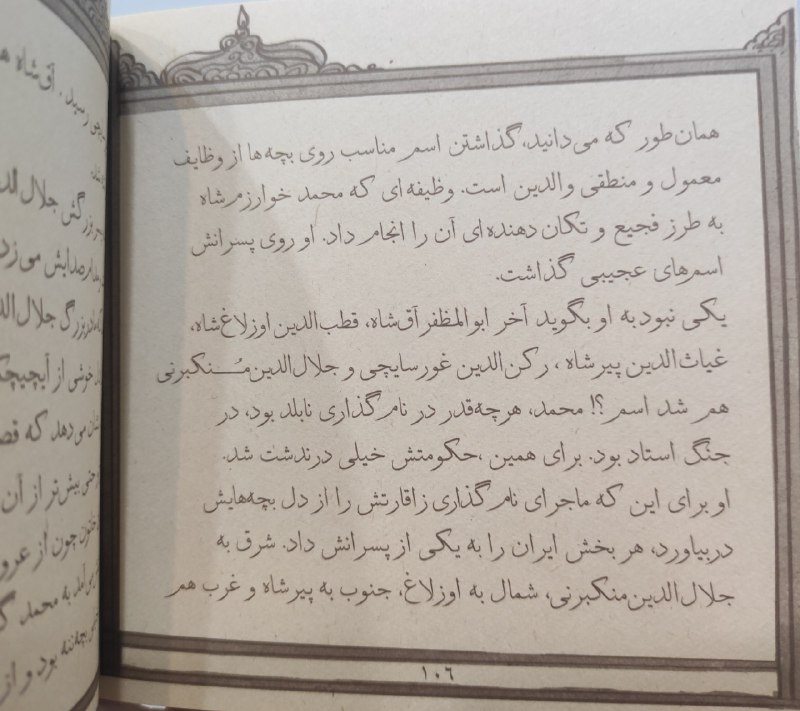 همان‌طور که می‌دانید، گذاشتن اسم مناسب روی بچه‌ها از وظایف
معمول و منطقی والدین است. وظیفه‌ای که محمد خوارزمشاه
به طرز فجیع و تکان دهنده‌ای آن را انجام داد. او روی پسرانش
اسم‌های عجیبی گذاشت.
یکی نبود به او بگوید آخر ابوالمظفر آق‌شاه، قطب‌الدین اوزلاغ‌شاه،
غیاث‌الدین پیرشاه، رکن‌الدین غورسایچی و جلال‌الدین مُنکبرنی
هم شد اسم؟! محمد، هرچه‌قدر در نام‌گذاری نابلد بود، در
جنگ استاد بود. برای همین، حکومتش خیلی درندشت شد.
او برای این که ماجرای نام‌گذاری زاقارتش را از دل بچه‌هایش
دربیاورد، هر بخش ایران را به یکی از پسرانش داد. شرق به
جلال‌الدین‌منکبرنی، شمال به اوزلاغ، جنوب به پیرشاه و غرب هم
۱۰۶
رسید. آق‌شاه
جلال
صدایش می‌زد
بزرگ جلال
خوشی از آیچیچک
می‌دهد که
بیش‌تر از آن
چون از
به محمد
بود و از